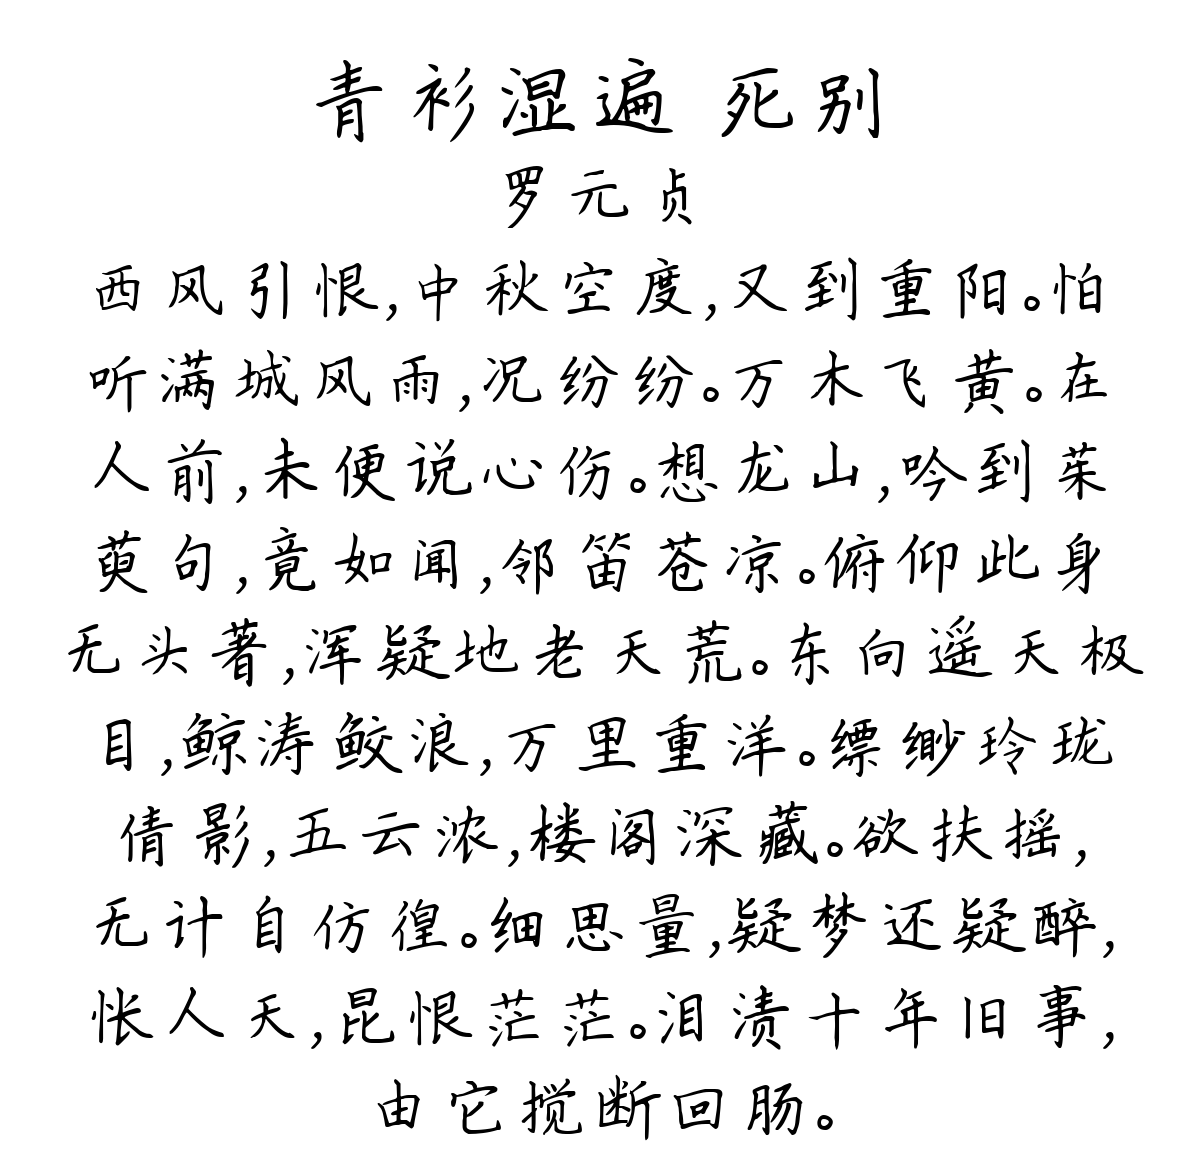 青衫湿遍 死别
罗元贞
西风引恨,中秋空度,又到重阳。怕
听满城风雨,况纷纷。万木飞黄。在
人前,未便说心伤。想龙山,吟到茱
萸句,竟如闻,邻笛苍凉。俯仰此身
无头著,浑疑地老天荒。东向遥天极
目,鲸涛鲛浪,万里重洋。缥缈玲珑
倩影,五云浓,楼阁深藏。欲扶摇,
无计自仿徨。细思量,疑梦还疑醉,
怅人天,昆恨茫茫。泪渍十年旧事,
由它搅断回肠。